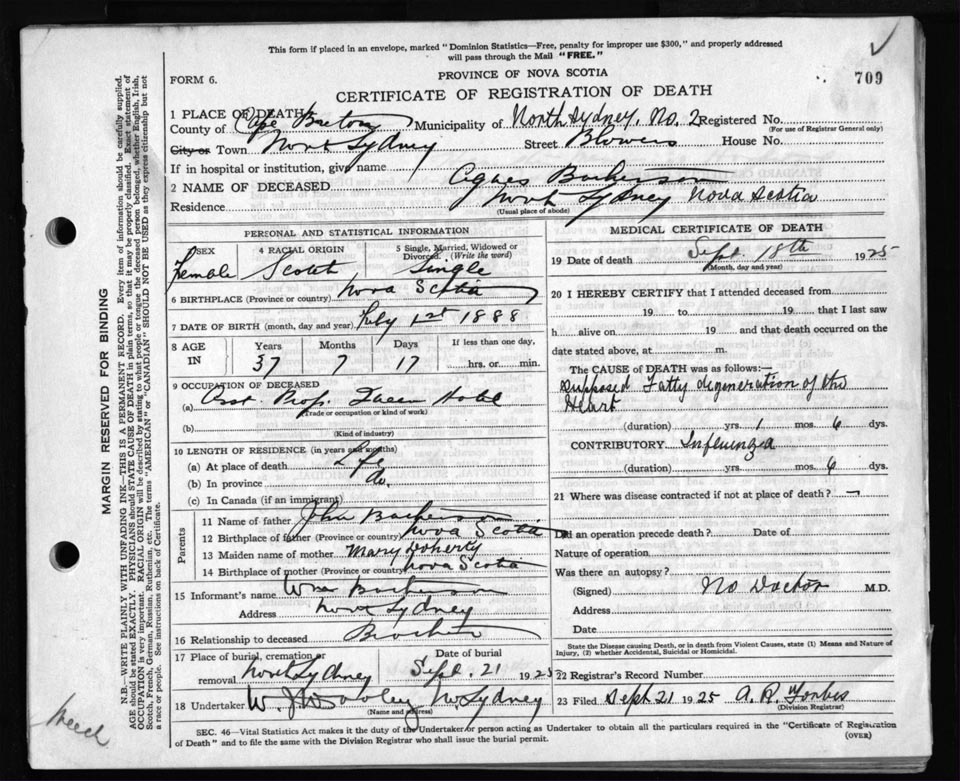 This form if placed in an envelope, marked "Dominion Statistics—Free, penalty for improper use $300," and properly addressed
will pass through the Mail "FREE."
709
FORM 6.
PROVINCE OF NOVA SCOTIA
CERTIFICATE OF REGISTRATION OF DEATH
1 PLACE OF DEATH
County of Cape Breton Municipality of North Sydney, No. 2 Registered No.
(For use of Registrar General only)
City or Town North Sydney Street Blowers House No.
If in hospital or institution, give name
2 NAME OF DECEASED Agnes
Residence North Sydney Nova Scotia
(Usual place of abode)
PERSONAL AND STATISTICAL INFORMATION
3 SEX 4 RACIAL ORIGIN 5 Single, Married, Widowed or Divorced. (Write the word)
Female Scotch Single
6 BIRTHPLACE (Province or country) Nova Scotia
7 DATE OF BIRTH (month, day and year) 1st 1888
8 AGE IN Years Months Days If less than one day,
37 7 17 hrs. or min.
9 OCCUPATION OF DECEASED
(a) Asst. Prop. Queen Hotel
(Trade or occupation or kind of work)
(b)
(Kind of industry)
10 LENGTH OF RESIDENCE (in years and months)
(a) At place of death Life
(b) In province Do.
(c) In Canada (if an immigrant)
Parents
11 Name of father John
12 Birthplace of father (Province or country) Nova Scotia
13 Maiden name of mother Mary Doherty
14 Birthplace of mother (Province or country) Nova Scotia
15 Informant's name
Address North Sydney
16 Relationship to deceased Brother
17 Place of burial, cremation or removal Date of burial
North Sydney Sept. 21 1925
18 Undertaker W. J. N. Sydney
(Name and address)
MEDICAL CERTIFICATE OF DEATH
19 Date of death Sept. 18th 1925
(Month, day and year)
20 I HEREBY CERTIFY that I attended deceased from
19 to 19 that I last saw
h alive on 19 and that death occurred on the
date stated above, at m.
The CAUSE of DEATH was as follows:—
Supposed Fatty degeneration of the
Heart
(duration) yrs. 1 mos. 6 dys.
CONTRIBUTORY Influenza
(duration) yrs. mos. 6 dys.
21 Where was disease contracted if not at place of death? —
Did an operation precede death? Date of
Nature of operation
Was there an autopsy?
(Signed) No Doctor M.D.
Address
Date
State the Disease causing Death, or in death from Violent Causes, state (1) Means and Nature of
Injury, (2) whether Accidental, Suicidal or Homicidal.
22 Registrar's Record Number
23 Filed Sept 21 1925 A. R. Forbes
(Division Registrar)
SEC. 46—Vital Statistics Act makes it the duty of the Undertaker or person acting as Undertaker to obtain all the particulars required in the "Certificate of Registration
of Death" and to file the same with the Division Registrar who shall issue the burial permit.
(OVER)
MARGIN RESERVED FOR BINDING
N.B.—WRITE PLAINLY WITH UNFADING INK—THIS IS A PERMANENT RECORD. Every item of information should be carefully supplied.
AGE should be stated EXACTLY. PHYSICIANS should STATE CAUSE OF DEATH in plain terms, so that it may be properly classified. Exact statement of
OCCUPATION is very important. RACIAL ORIGIN will be described by stating to what people or tongue the deceased person belonged, whether English, Irish,
Scotch, French, German, Russian, Ruthenian, etc. The terms "AMERICAN" or "CANADIAN" SHOULD NOT BE USED as they express citizenship but not
a race or people. See instructions on back of Certificate.